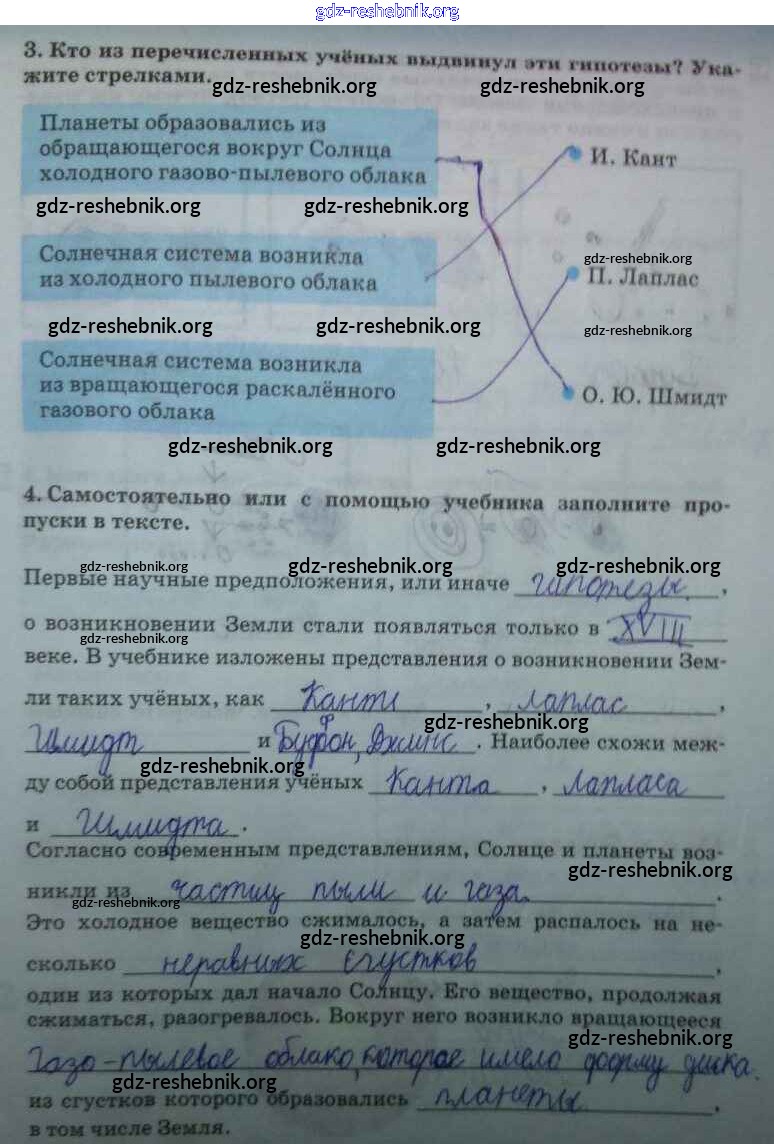 gdz-reshebnik.org
3. Кто из перечисленных учёных выдвинул эти гипотезы? Ука-
жите стрелками.
gdz-reshebnik.org gdz-reshebnik.org
Планеты образовались из
обращающегося вокруг Солнца
холодного газово-пылевого облака
И. Кант
gdz-reshebnik.org gdz-reshebnik.org
Солнечная система возникла
из холодного пылевого облака
gdz-reshebnik.org
П. Лаплас
gdz-reshebnik.org gdz-reshebnik.org gdz-reshebnik.org
Солнечная система возникла
из вращающегося раскалённого
газового облака
О. Ю. Шмидт
gdz-reshebnik.org gdz-reshebnik.org
4. Самостоятельно или с помощью учебника заполните про-
пуски в тексте.
gdz-reshebnik.org gdz-reshebnik.org gdz-reshebnik.org
Первые научные предположения, или иначе гипотезы,
о возникновении Земли стали появляться только в XVIII
gdz-reshebnik.org
веке. В учебнике изложены представления о возникновении Зем-
ли таких учёных, как Кант, Лаплас,
gdz-reshebnik.org
Шмидт и Буффон, Джинс. Наиболее схожи меж-
gdz-reshebnik.org
ду собой представления учёных Канта, Лапласа
и Шмидта.
Согласно современным представлениям, Солнце и планеты воз-
gdz-reshebnik.org
никли из частиц пыли и газа.
gdz-reshebnik.org
Это холодное вещество сжималось, а затем распалось на не-
gdz-reshebnik.org
сколько неравных сгустков,
один из которых дал начало Солнцу. Его вещество, продолжая
сжиматься, разогревалось. Вокруг него возникло вращающееся
gdz-reshebnik.org
газо-пылевое облако, которое имело форму диска.
gdz-reshebnik.org
из сгустков которого образовались планеты,
в том числе Земля.